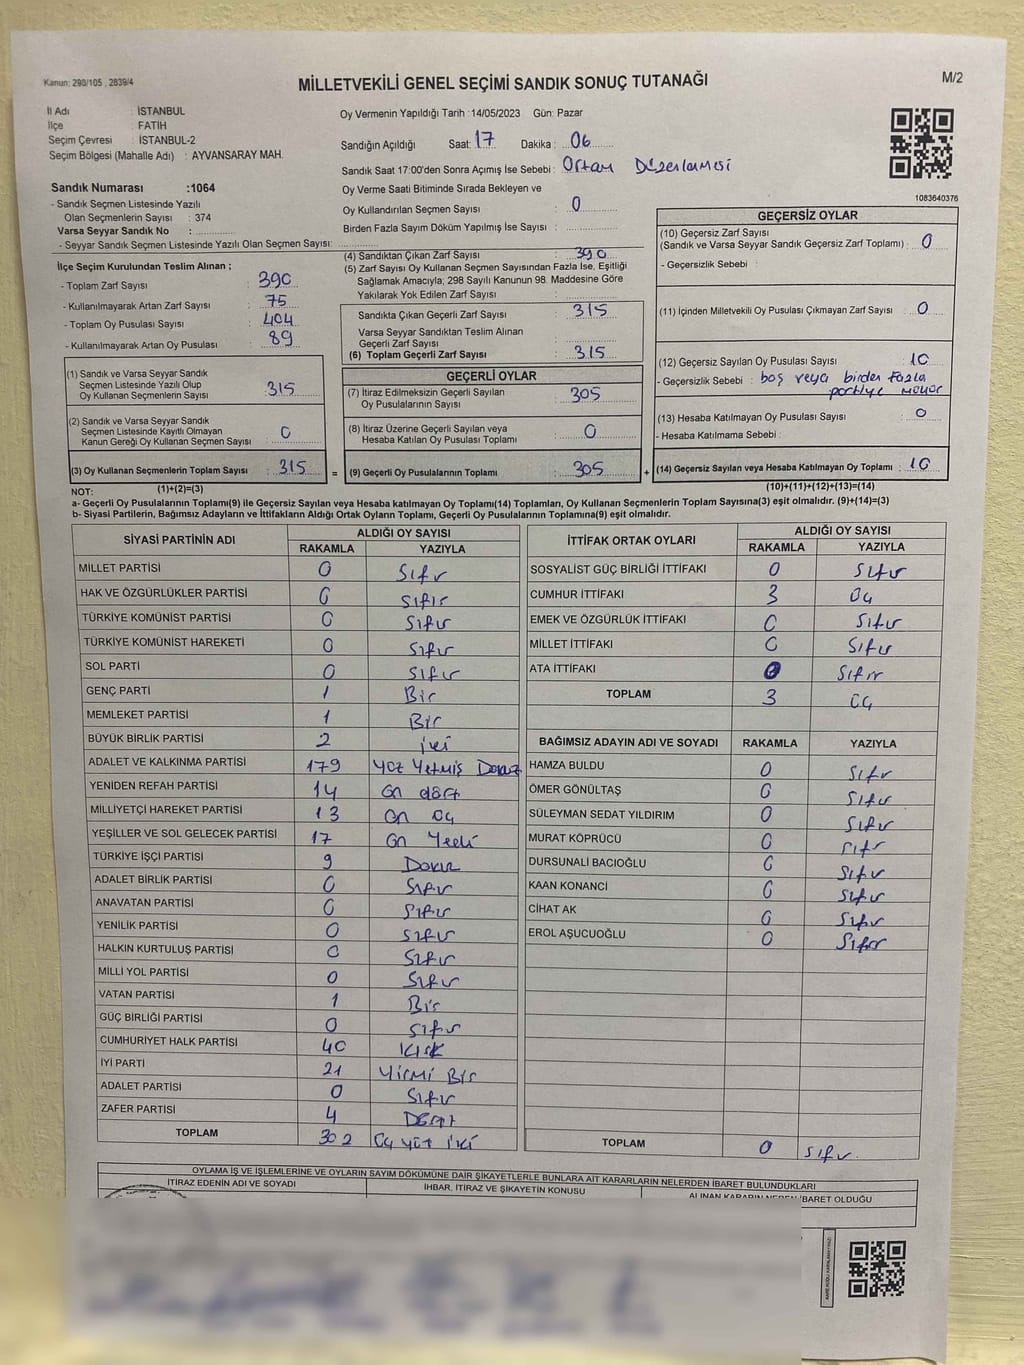 Kanun: 290/105 , 2839/4
MİLLETVEKİLİ GENEL SEÇİMİ SANDIK SONUÇ TUTANAĞI
M/2
İl Adı : İSTANBUL
İlçe : FATİH
Seçim Çevresi : İSTANBUL-2
Seçim Bölgesi (Mahalle Adı) : AYVANSARAY MAH.
Oy Vermenin Yapıldığı Tarih :14/05/2023 Gün: Pazar
Sandığın Açıldığı Saat: 17 Dakika : 06
Sandık Saat 17:00'den Sonra Açımış İse Sebebi : Ortam Düzenlemesi
Oy Verme Saati Bitiminde Sırada Bekleyen ve
Oy Kullandırılan Seçmen Sayısı : 0
Birden Fazla Sayım Döküm Yapılmış İse Sayısı :
1083640376
Sandık Numarası :1064
- Sandık Seçmen Listesinde Yazılı
Olan Seçmenlerin Sayısı : 374
Varsa Seyyar Sandık No :
- Seyyar Sandık Seçmen Listesinde Yazılı Olan Seçmen Sayısı:
İlçe Seçim Kurulundan Teslim Alınan ;
- Toplam Zarf Sayısı : 390
- Kullanılmayarak Artan Zarf Sayısı : 75
- Toplam Oy Pusulası Sayısı : 404
- Kullanılmayarak Artan Oy Pusulası : 89
(1) Sandık ve Varsa Seyyar Sandık
Seçmen Listesinde Yazılı Olup
Oy Kullanan Seçmenlerin Sayısı : 315
(2) Sandık ve Varsa Seyyar Sandık
Seçmen Listesinde Kayıtlı Olmayan
Kanun Gereği Oy Kullanan Seçmen Sayısı : 0
(3) Oy Kullanan Seçmenlerin Toplam Sayısı : 315
(4) Sandıktan Çıkan Zarf Sayısı : 390
(5) Zarf Sayısı Oy Kullanan Seçmen Sayısından Fazla İse, Eşitliği
Sağlamak Amacıyla; 298 Sayılı Kanunun 98. Maddesine Göre
Yakılarak Yok Edilen Zarf Sayısı :
Sandıkta Çıkan Geçerli Zarf Sayısı : 315
Varsa Seyyar Sandıktan Teslim Alınan
Geçerli Zarf Sayısı :
(6) Toplam Geçerli Zarf Sayısı : 315
GEÇERLİ OYLAR
(7) İtiraz Edilmeksizin Geçerli Sayılan
Oy Pusulalarının Sayısı : 305
(8) İtiraz Üzerine Geçerli Sayılan veya
Hesaba Katılan Oy Pusulaları Toplamı : 0
= (9) Geçerli Oy Pusulalarının Toplamı : 305
GEÇERSİZ OYLAR
(10) Geçersiz Zarf Sayısı
(Sandık ve Varsa Seyyar Sandık Geçersiz Zarf Toplamı) : 0
- Geçersizlik Sebebi :
(11) İçinden Milletvekili Oy Pusulası Çıkmayan Zarf Sayısı : 0
(12) Geçersiz Sayılan Oy Pusulası Sayısı : 10
- Geçersizlik Sebebi : boş veya birden fazla
partiye
(13) Hesaba Katılmayan Oy Pusulası Sayısı : 0
- Hesaba Katılmama Sebebi :
+ (14) Geçersiz Sayılan veya Hesaba Katılmayan Oy Toplamı : 10
NOT: (1)+(2)=(3)
(10)+(11)+(12)+(13)=(14)
a- Geçerli Oy Pusulalarının Toplamı(9) ile Geçersiz Sayılan veya Hesaba katılmayan Oy Toplamı(14) Toplamları, Oy Kullanan Seçmenlerin Toplam Sayısına(3) eşit olmalıdır. (9)+(14)=(3)
b- Siyasi Partilerin, Bağımsız Adayların ve İttifakların Aldığı Ortak Oyların Toplamı, Geçerli Oy Pusulalarının Toplamına(9) eşit olmalıdır.
SİYASİ PARTİNİN ADI ALDIĞI OY SAYISI
RAKAMLA YAZIYLA
MİLLET PARTİSİ 0 Sıfır
HAK VE ÖZGÜRLÜKLER PARTİSİ 0 Sıfır
TÜRKİYE KOMÜNİST PARTİSİ 0 Sıfır
TÜRKİYE KOMÜNİST HAREKETİ 0 Sıfır
SOL PARTİ 0 Sıfır
GENÇ PARTİ 1 Bir
MEMLEKET PARTİSİ 1 Bir
BÜYÜK BİRLİK PARTİSİ 2 iki
ADALET VE KALKINMA PARTİSİ 179 Yüz Yetmiş Dokuz
YENİDEN REFAH PARTİSİ 14 On dört
MİLLİYETÇİ HAREKET PARTİSİ 13 On Üç
YEŞİLLER VE SOL GELECEK PARTİSİ 17 On Yedi
TÜRKİYE İŞÇİ PARTİSİ 9 Dokuz
ADALET BİRLİK PARTİSİ 0 Sıfır
ANAVATAN PARTİSİ 0 Sıfır
YENİLİK PARTİSİ 0 Sıfır
HALKIN KURTULUŞ PARTİSİ 0 Sıfır
MİLLİ YOL PARTİSİ 0 Sıfır
VATAN PARTİSİ 1 Bir
GÜÇ BİRLİĞİ PARTİSİ 0 Sıfır
CUMHURİYET HALK PARTİSİ 40 Kırk
İYİ PARTİ 21 Yirmi Bir
ADALET PARTİSİ 0 Sıfır
ZAFER PARTİSİ 4 Dört
TOPLAM 302 Üç yüz iki
İTTİFAK ORTAK OYLARI ALDIĞI OY SAYISI
RAKAMLA YAZIYLA
SOSYALİST GÜÇ BİRLİĞİ İTTİFAKI 0 Sıfır
CUMHUR İTTİFAKI 3 Üç
EMEK VE ÖZGÜRLÜK İTTİFAKI 0 Sıfır
MİLLET İTTİFAKI 0 Sıfır
ATA İTTİFAKI 0 Sıfır
TOPLAM 3 Üç
BAĞIMSIZ ADAYIN ADI VE SOYADI RAKAMLA YAZIYLA
HAMZA BULDU 0 Sıfır
ÖMER GÖNÜLTAŞ 0 Sıfır
SÜLEYMAN SEDAT YILDIRIM 0 Sıfır
MURAT KÖPRÜCÜ 0 Sıfır
DURSUNALİ BACIOĞLU 0 Sıfır
KAAN KONANCİ 0 Sıfır
CİHAT AK 0 Sıfır
EROL AŞUCUOĞLU 0 Sıfır
TOPLAM 0 Sıfır
OYLAMA İŞ VE İŞLEMLERİNE VE OYLARIN SAYIM DÖKÜMÜNE DAİR ŞİKAYETLERLE BUNLARA AİT KARARLARIN NELERDEN İBARET BULUNDUKLARI
İTİRAZ EDENİN ADI VE SOYADI İHBAR, İTİRAZ VE ŞİKAYETİN KONUSU ALINAN KARARIN NEDEN İBARET OLDUĞU